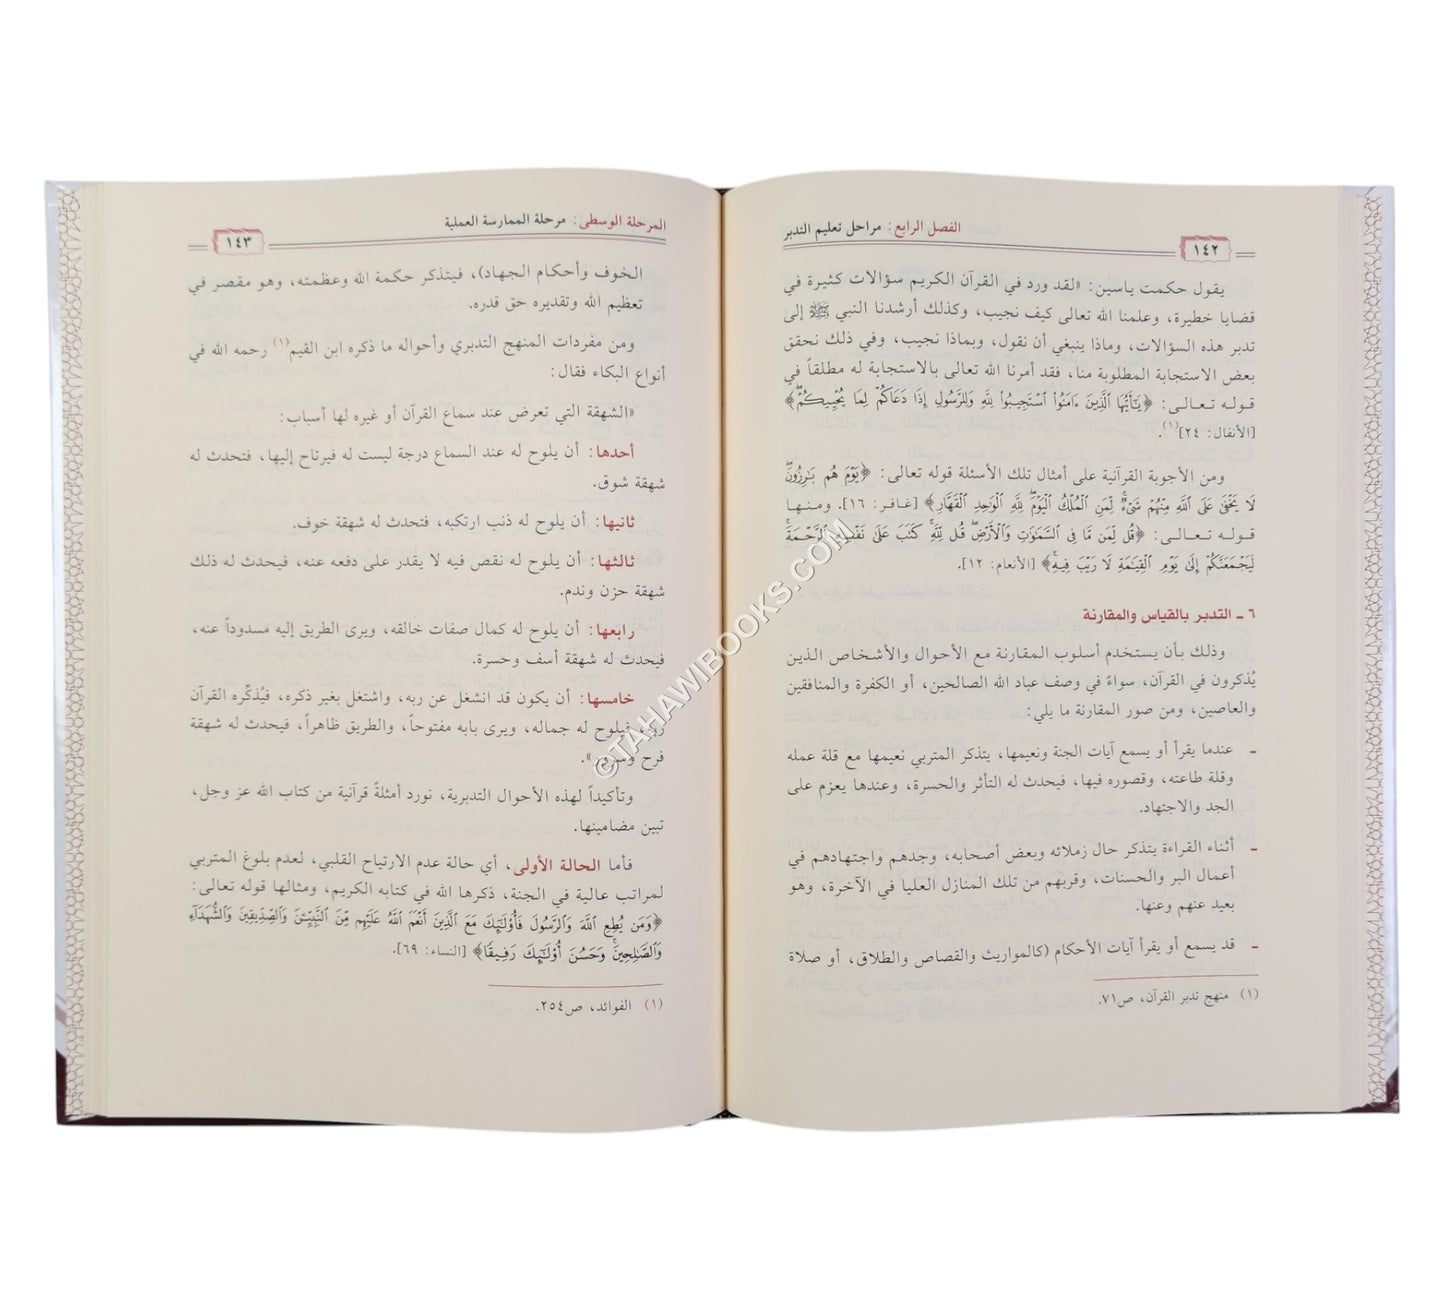 الفصل الرابع: مراحل تعليم التدبر
١٤٢
يقول حكمت ياسين: «لقد ورد في القرآن الكريم سؤالات كثيرة في
قضايا خطيرة، وعلمنا الله تعالى كيف نجيب، وكذلك أرشدنا النبي ﷺ إلى
تدبر هذه السؤالات، وماذا ينبغي أن نقول، وبماذا نجيب، وفي ذلك نحقق
بعض الاستجابة المطلوبة منا، فقد أمرنا الله تعالى بالاستجابة له مطلقاً في
قوله تعالى: ﴿يَٰٓأَيُّهَا ٱلَّذِينَ ءَامَنُوا۟ ٱسْتَجِيبُوا۟ لِلَّهِ وَلِلرَّسُولِ إِذَا دَعَاكُمْ لِمَا يُحْيِيكُمْۖ﴾
[الأنفال: ٢٤]»(١).
ومن الأجوبة القرآنية على أمثال تلك الأسئلة قوله تعالى: ﴿يَوْمَ هُم بَٰرِزُونَۖ
لَا يَخْفَىٰ عَلَى ٱللَّهِ مِنْهُمْ شَىْءٌۚ لِّمَنِ ٱلْمُلْكُ ٱلْيَوْمَۖ لِلَّهِ ٱلْوَٰحِدِ ٱلْقَهَّارِ﴾ [غافر: ١٦]. ومنها
قوله تعالى: ﴿قُل لِّمَن مَّا فِى ٱلسَّمَٰوَٰتِ وَٱلْأَرْضِۖ قُل لِّلَّهِۚ كَتَبَ عَلَىٰ نَفْسِهِ ٱلرَّحْمَةَۚ
لَيَجْمَعَنَّكُمْ إِلَىٰ يَوْمِ ٱلْقِيَٰمَةِ لَا رَيْبَ فِيهِۚ﴾ [الأنعام: ١٢].
٦ ـ التدبر بالقياس والمقارنة
وذلك بأن يستخدم أسلوب المقارنة مع الأحوال والأشخاص الذين
يُذكرون في القرآن، سواءً في وصف عباد الله الصالحين، أو الكفرة والمنافقين
والعاصين، ومن صور المقارنة ما يلي:
ـ عندما يقرأ أو يسمع آيات الجنة ونعيمها، يتذكر المتربي نعيمها مع قلة عمله
وقلة طاعته، وقصوره فيها، فيحدث له التأثر والحسرة، وعندها يعزم على
الجد والاجتهاد.
ـ أثناء القراءة يتذكر حال زملائه وبعض أصحابه، وجدهم واجتهادهم في
أعمال البر والحسنات، وقربهم من تلك المنازل العليا في الآخرة، وهو
بعيد عنهم وعنها.
ـ قد يسمع أو يقرأ آيات الأحكام (كالمواريث والقصاص والطلاق، أو صلاة
(١) منهج تدبر القرآن، ص٧١.
المرحلة الوسطى: مرحلة الممارسة العملية
١٤٣
الخوف وأحكام الجهاد)، فيتذكر حكمة الله وعظمته، وهو مقصر في
تعظيم الله وتقديره حق قدره.
ومن مفردات المنهج التدبري وأحواله ما ذكره ابن القيم(١) رحمه الله في
أنواع البكاء فقال:
«الشهقة التي تعرض عند سماع القرآن أو غيره لها أسباب:
أحدها: أن يلوح له عند السماع درجة ليست له فيرتاح إليها، فتحدث له
شهقة شوق.
ثانيها: أن يلوح له ذنب ارتكبه، فتحدث له شهقة خوف.
ثالثها: أن يلوح له نقص فيه لا يقدر على دفعه عنه، فيحدث له ذلك
شهقة حزن وندم.
رابعها: أن يلوح له كمال صفات خالقه، ويرى الطريق إليه مسدوداً عنه،
فيحدث له شهقة أسف وحسرة.
خامسها: أن يكون قد انشغل عن ربه، واشتغل بغير ذكره، فيُذكِّره القرآن
ربه، فيلوح له جماله، ويرى بابه مفتوحاً، والطريق ظاهراً، فيحدث له شهقة
فرح وسرور».
وتأكيداً لهذه الأحوال التدبرية، نورد أمثلةً قرآنية من كتاب الله عز وجل،
تبين مضامينها.
فأما الحالة الأولى، أي حالة عدم الارتياح القلبي، لعدم بلوغ المتربي
لمراتب عالية في الجنة، ذكرها الله في كتابه الكريم، ومثالها قوله تعالى:
﴿وَمَن يُطِعِ ٱللَّهَ وَٱلرَّسُولَ فَأُو۟لَٰٓئِكَ مَعَ ٱلَّذِينَ أَنْعَمَ ٱللَّهُ عَلَيْهِم مِّنَ ٱلنَّبِيِّۦنَ وَٱلصِّدِّيقِينَ وَٱلشُّهَدَآءِ
وَٱلصَّٰلِحِينَۚ وَحَسُنَ أُو۟لَٰٓئِكَ رَفِيقًا﴾ [النساء: ٦٩].
(١) الفوائد، ص٢٥٤.
©TAHAWIBOOKS.COM